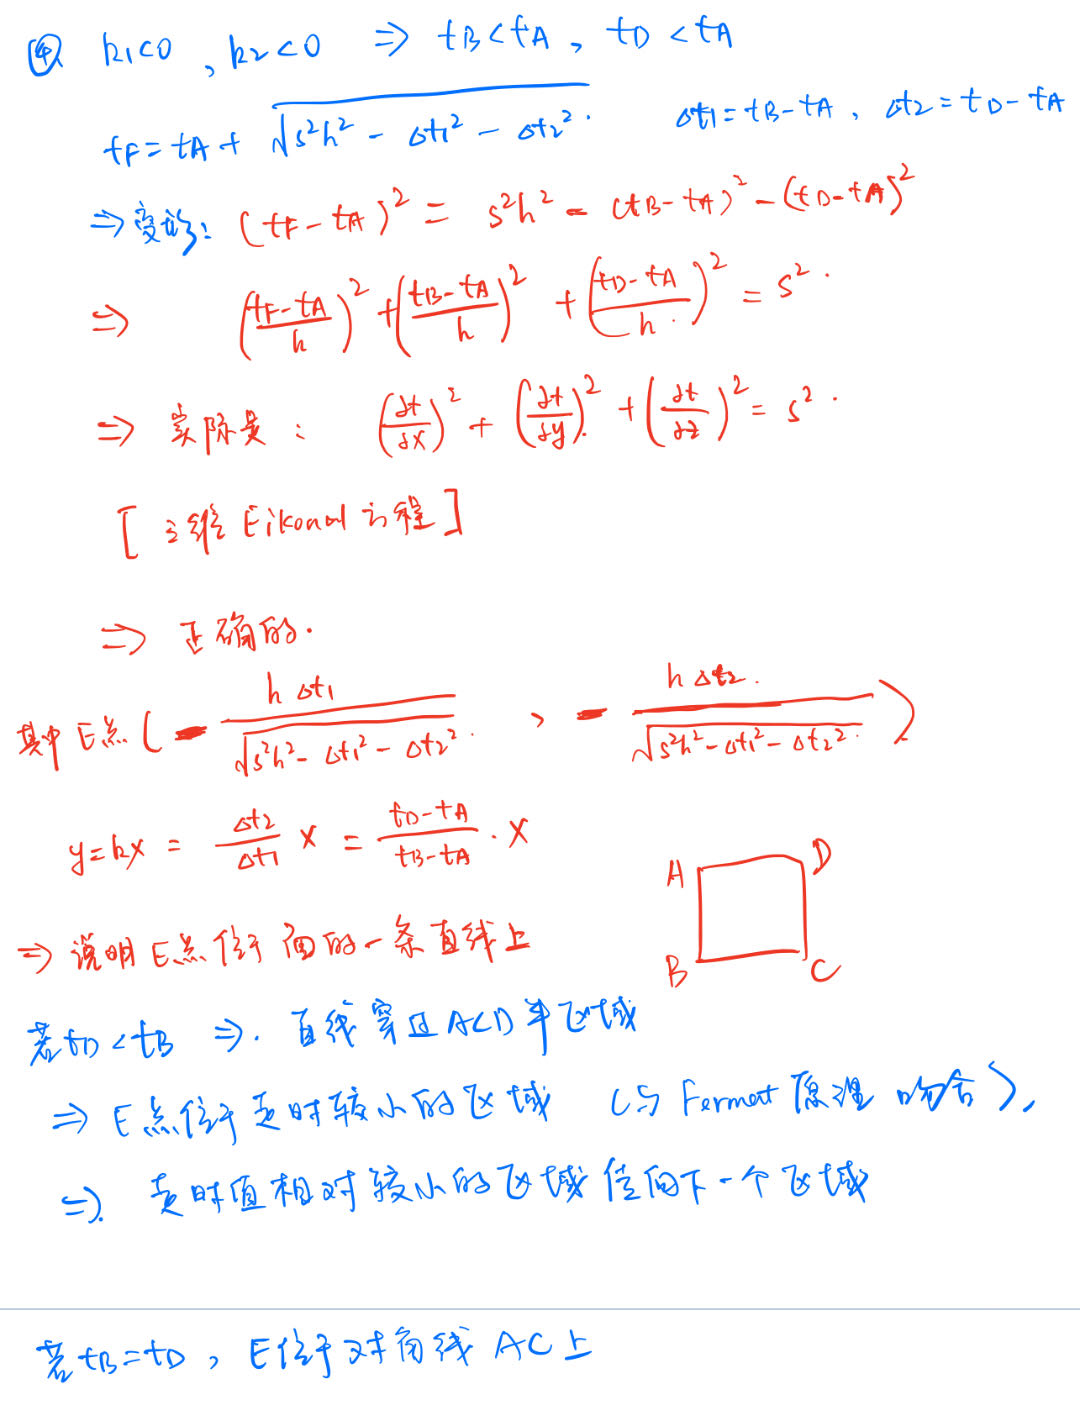 ④ k₁<0 , k₂<0 ⇒ t_B<t_A , t_D<t_A
t_F = t_A + √(s²h² - Δt₁² - Δt₂²) . Δt₁ = t_B - t_A , Δt₂ = t_D - t_A
⇒ 变形: (t_F - t_A)² = s²h² - (t_B - t_A)² - (t_D - t_A)²
⇒ ((t_F - t_A)/h)² + ((t_B - t_A)/h)² + ((t_D - t_A)/h)² = s² .
⇒ 实际是 : (∂t/∂x)² + (∂t/∂y)² + (∂t/∂z)² = s² .
[ 三维 Eikonal 方程 ]
⇒ 正确的.
其中 E点 ( - hΔt₁/√(s²h² - Δt₁² - Δt₂²) , - hΔt₂/√(s²h² - Δt₁² - Δt₂²) )
y = kx = Δt₂/Δt₁ x = (t_D - t_A)/(t_B - t_A) · x
A D
B C
⇒ 说明 E点位于面的一条直线上
若 t_D < t_B ⇒. 直线穿过 ACD 半区域
⇒ E点位于走时较小的区域 (与 Fermat 原理吻合),
⇒. 走时值相对较小的区域传向下一个区域
若 t_B = t_D , E位于对角线 AC 上